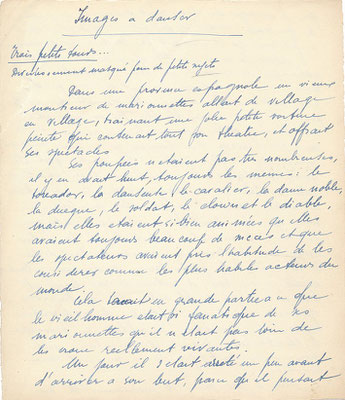 Images a danser
Trois petits tours...
Divertissement masqué pour de petits sujets
Dans une province espagnole un vieux
monteur de marionnettes allait de village
en village, trainant une jolie petite voiture
peinte qui contenait tout son theatre, et offrait
ses spectacles
Ses poupées n'etaient pas très nombreuses,
il y en avait huit, toujours les memes: le
toreador, la danseuse, le cavalier, la dame noble,
la duegne, le soldat, le clown et le diable,
mais elles etaient si bien animées qu'elles
avaient toujours beaucoup de succes et que
les spectateurs avaient pris l'habitude de les
considerer comme les plus habiles acteurs du
monde.
Cela tenait en grande partie a ce que
le vieil homme etait si fanatique de ses
marionnettes qu'il n'etait pas loin de
les croire reellement vivantes.
Un jour il s'etait arreté un peu avant
d'arriver a son but, parce qu'il pensait